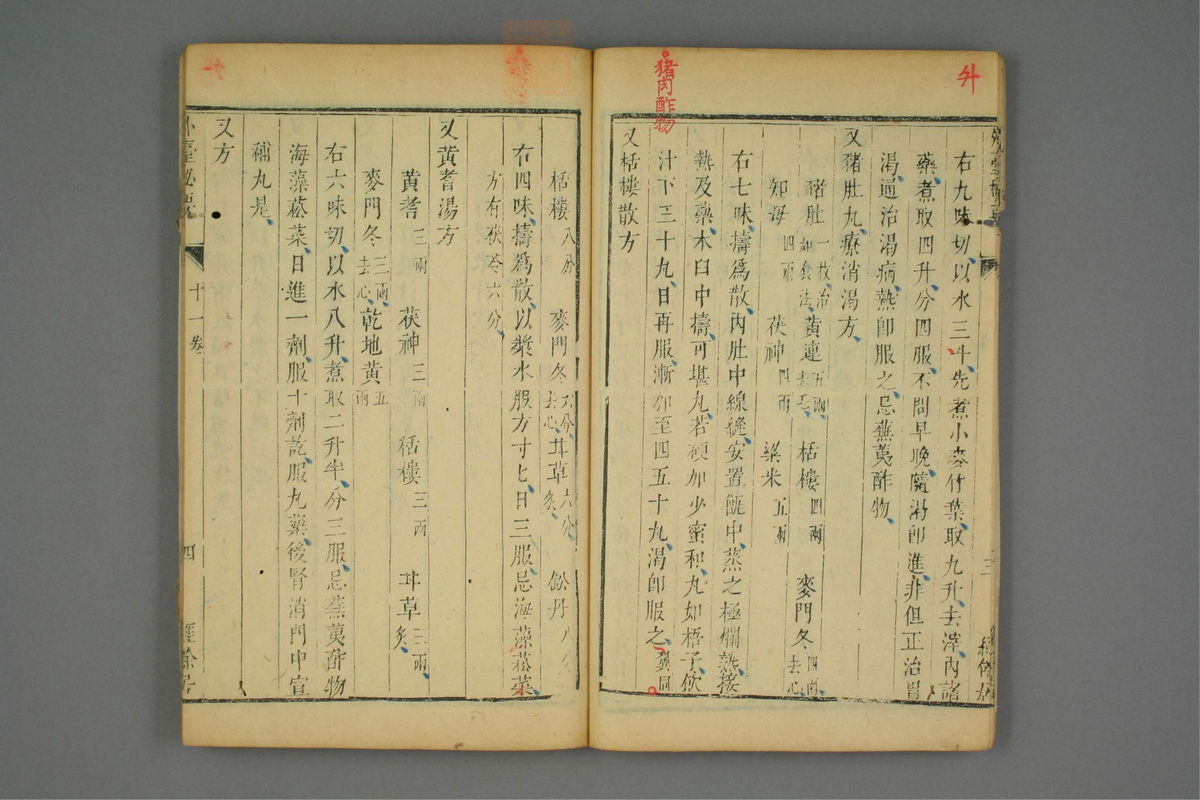 外
猪肉酢物
右九味切以水三斗先煮小麥竹葉取九升去滓內諸
藥煮取四升分四服不問早晚隨渴即進非但正治胃
渴通治渴病熱即服之忌蕪荑酢物
又豬肚丸療消渴方
豬肚一枚治如食法 黃連五兩去毛 栝樓四兩 麥門冬四兩去心
知母四兩 茯神四兩 粱米五兩
右七味擣為散內肚中線縫安置甑中蒸之極爛熟接
熱及藥木臼中擣可堪丸若硬加少蜜和丸如梧子飲
汁下三十丸日再服漸加至四五十丸渴即服之
又栝樓散方
栝樓八分 麥門冬六分去心 甘草六分炙 鉛丹八分
右四味擣為散以漿水服方寸匕日三服忌海藻菘菜
方有茯苓六分
又黃耆湯方
黃耆三兩 茯神三兩 栝樓三兩 甘草三兩炙
麥門冬三兩去心 乾地黃五兩
右六味切以水八升煮取二升半分三服忌蕪荑酢物
海藻菘菜日進一劑服十劑訖服丸藥後腎消門中宣
補丸是
又方
外臺秘要
十一卷
四
經餘居
外